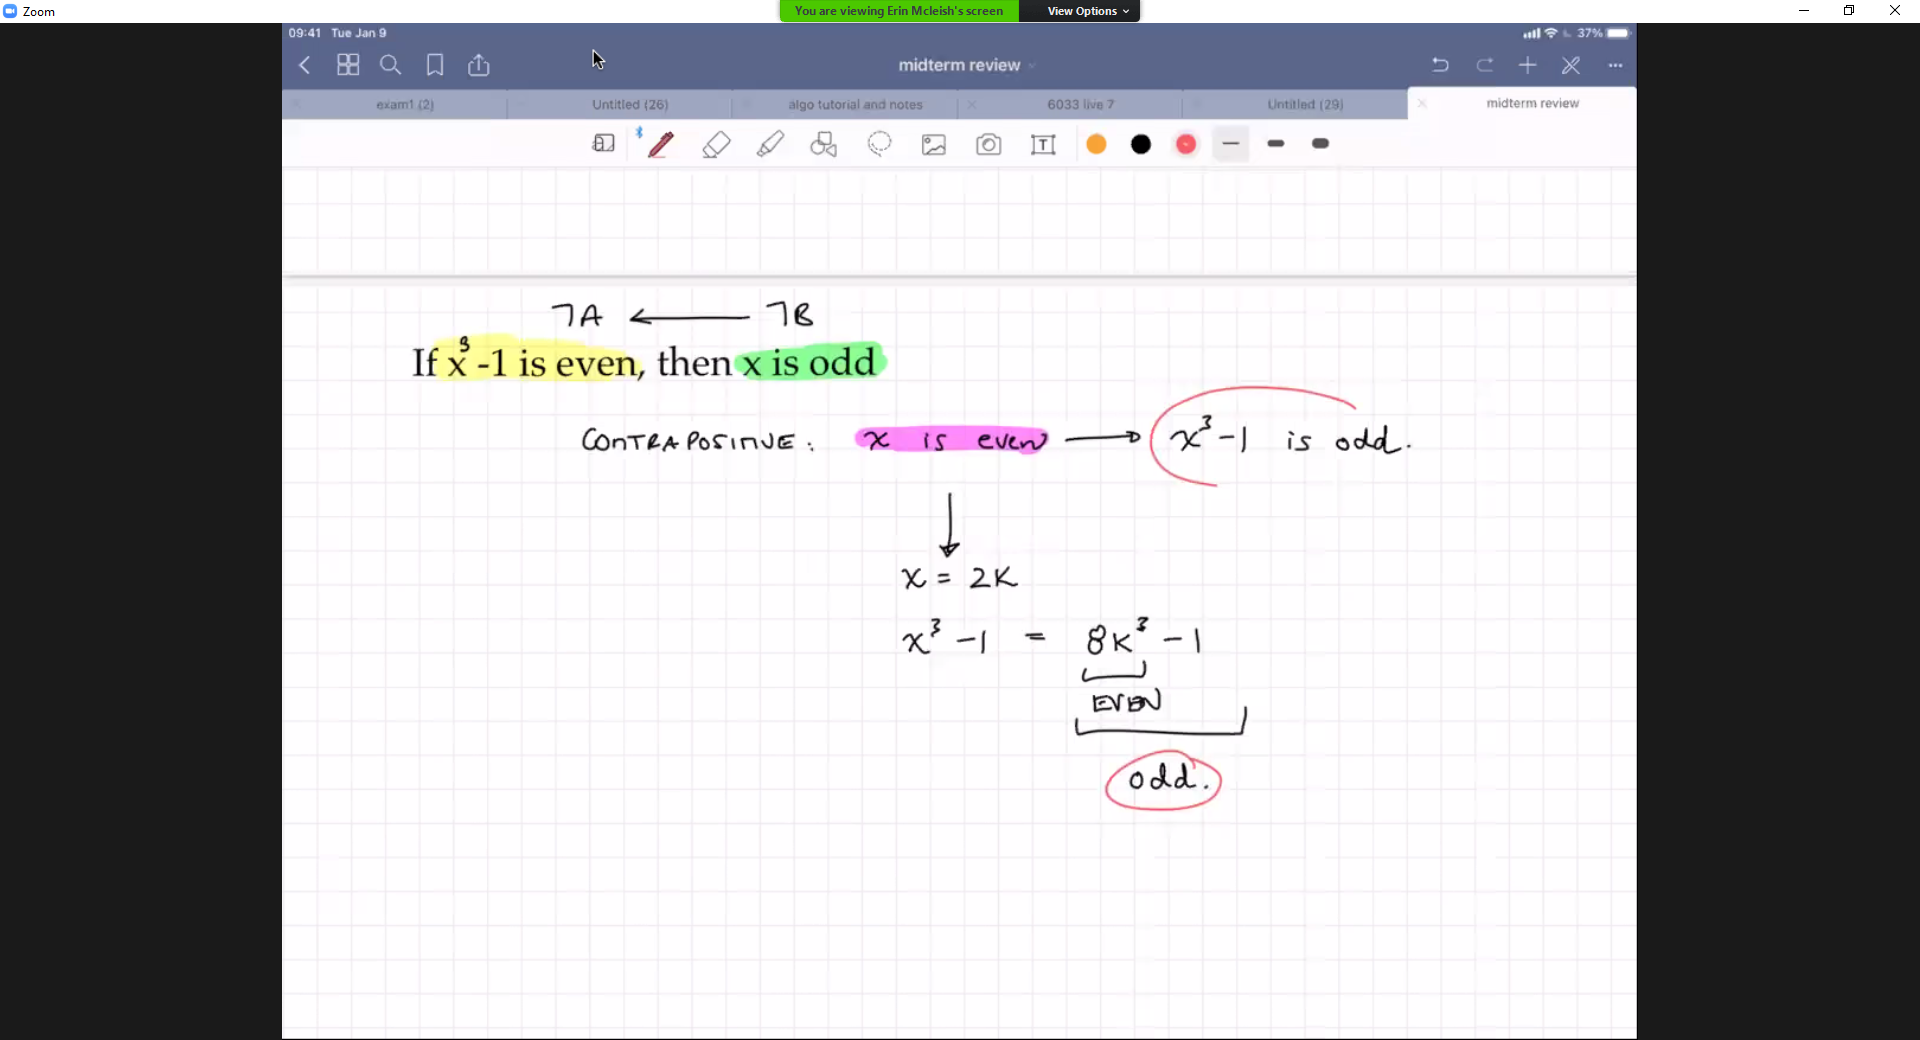 Zoom
You are viewing Erin Mcleish's screen View Options
09:41 Tue Jan 9 37%
midterm review
exam1 (2) Untitled (26) algo tutorial and notes 6033 live 7 Untitled (29) midterm review
T
¬A ← ¬B
If x³ -1 is even, then x is odd
CONTRAPOSITIVE: x is even → x³ - 1 is odd.
x = 2K
x³ - 1 = 8K³ - 1
EVEN
odd.